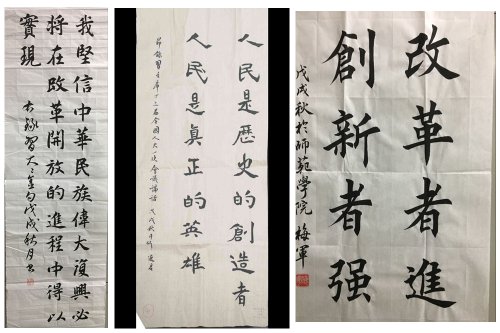 我堅信中華民族偉大復興必
將在改革開放的進程中得以
實現
錄習大大金句戊戌秋月書
人民是歷史的創造者
人民是真正的英雄
節錄習主席十三屆全國人大一次會議講話 戊戌秋月
改革者進
創新者强
戊戌秋於師范學院 梅軍